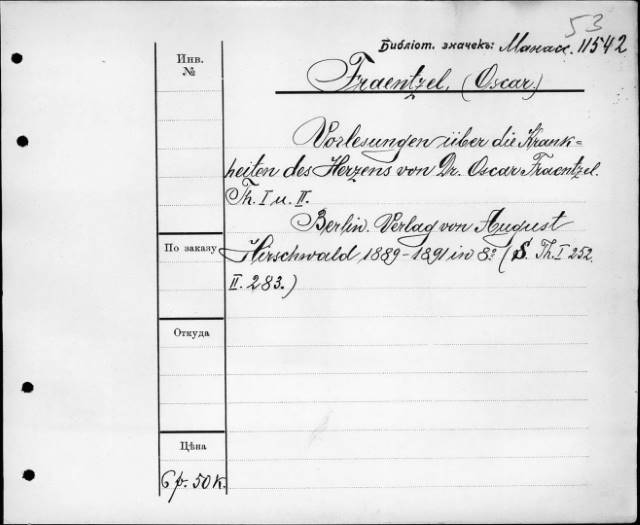 53
Библіот. значекъ: Манас. 11542
Инв.
№
Fraentzel, (Oscar.)
Vorlesungen über die Krank=
heiten des Herzens von Dr. Oscar Fraentzel.
Th. I u. II.
Berlin. Verlag von August
По заказу
Hirschwald, 1889-1891 in 8º (S. Th. I 252.
II. 283.)
Откуда
Цѣна
6 р. 50 к.